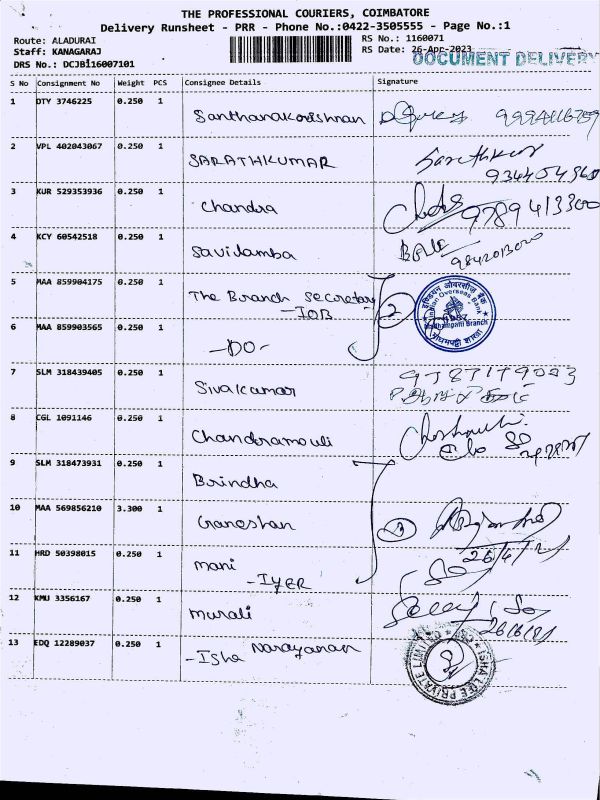 THE PROFESSIONAL COURIERS, COIMBATORE
Delivery Runsheet - PRR - Phone No.:0422-3505555 - Page No.:1
Route: ALADURAI
RS No.: 1160071
Staff: KANAGARAJ
RS Date: 26-Apr-2023
DOCUMENT DELIVERY
DRS No.: DCJB116007101
S No Consignment No Weight PCS Consignee Details Signature
1 DTY 3746225 0.250 1
Santhanakrishnan
2 VPL 402043067 0.250 1
SARATHKUMAR
Sarathkumar
3 KUR 529353936 0.250 1
Chandra 9789413300
4 KCY 60542518 0.250 1
Savidamba 9842013020
5 MAA 859904175 0.250 1
The Branch Secretary
-IOB 2
Indian Overseas Bank
Branch
6 MAA 859903565 0.250 1
-DO-
7 SLM 318439405 0.250 1
Sivakumar 9787179003
8 CGL 1091146 0.250 1
Chandramouli
9 SLM 318473931 0.250 1
Brindha
10 MAA 569856210 3.300 1
Ganeshan 3
11 HRD 50398015 0.250 1
mani
-IYER
26/4/21
12 KMU 3356167 0.250 1
murali
13 EDQ 12289037 0.250 1
Narayanan
-Isha
ISHA LIFE PRIVATE LIMITED